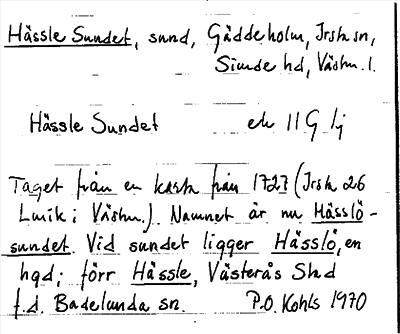 Hässle Sundet, sund, Gäddeholm, Irsta sn,
Siende hd, Västm. l.
Hässle Sundet ek 11 G 1j
Taget från en karta från 1727 (Irsta 26
Lmk i Västm.). Namnet är nu Hässlö-
sundet. Vid sundet ligger Hässlö, en
hgd; förr Hässle, Västerås Stad
f.d. Badelunda sn. P.O. Kohls 1970